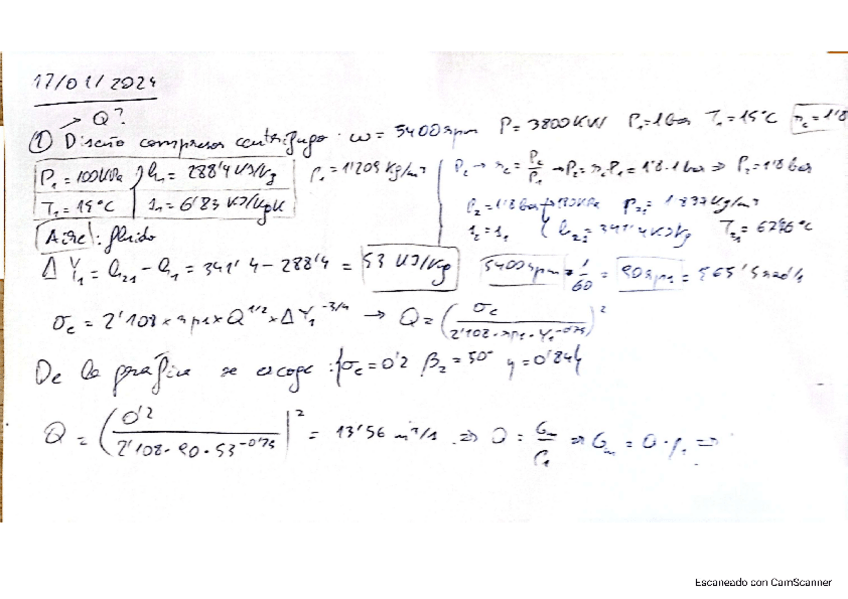 17/01/2024
→ Q?
① Diseño compresor centrífugo · ω = 5400 rpm P = 3800 KW P₁ = 1 bar T₁ = 15°C r_c = 1'8
P₁ = 100 KPa h₁ = 288'4 KJ/Kg ρ₁ = 1'209 Kg/m³ P₂ → r_c = P₂/P₁ → P₂ = r_c P₁ = 1'8 · 1 bar ⇒ P₂ = 1'8 bar
T₁ = 15°C s₁ = 6'83 KJ/KgK P₂ = 1'8 bar → 180 KPa
Aire: fluido s₂ = s₁ h₂₁ = 341'4 KJ/Kg
Δ Y₁ = h₂₁ - h₁ = 341'4 - 288'4 = 53 KJ/Kg 5400 rpm · 1/60 = 90 rps = 565'5 rad/s
σ_c = 2'108 × rps × Q^1/2 × ΔY₁^-3/4 → Q = (σ_c / 2'108 · rps · Y₁^-0'75)²
De la gráfica se escoge: {σ_c = 0'2 β₂ = 50° η = 0'84}
Q = (0'2 / 2'108 · 90 · 53^-0'75)² = 13'56 m³/s ⇒ Q = G_m/ρ₁ ⇒ G_m = Q · ρ₁ ⇒
Escaneado con CamScanner